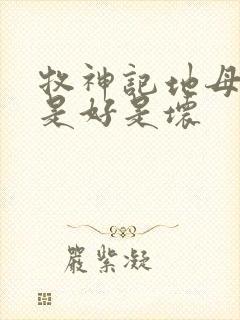 牧神記地母
是好是壞
嚴紫凝